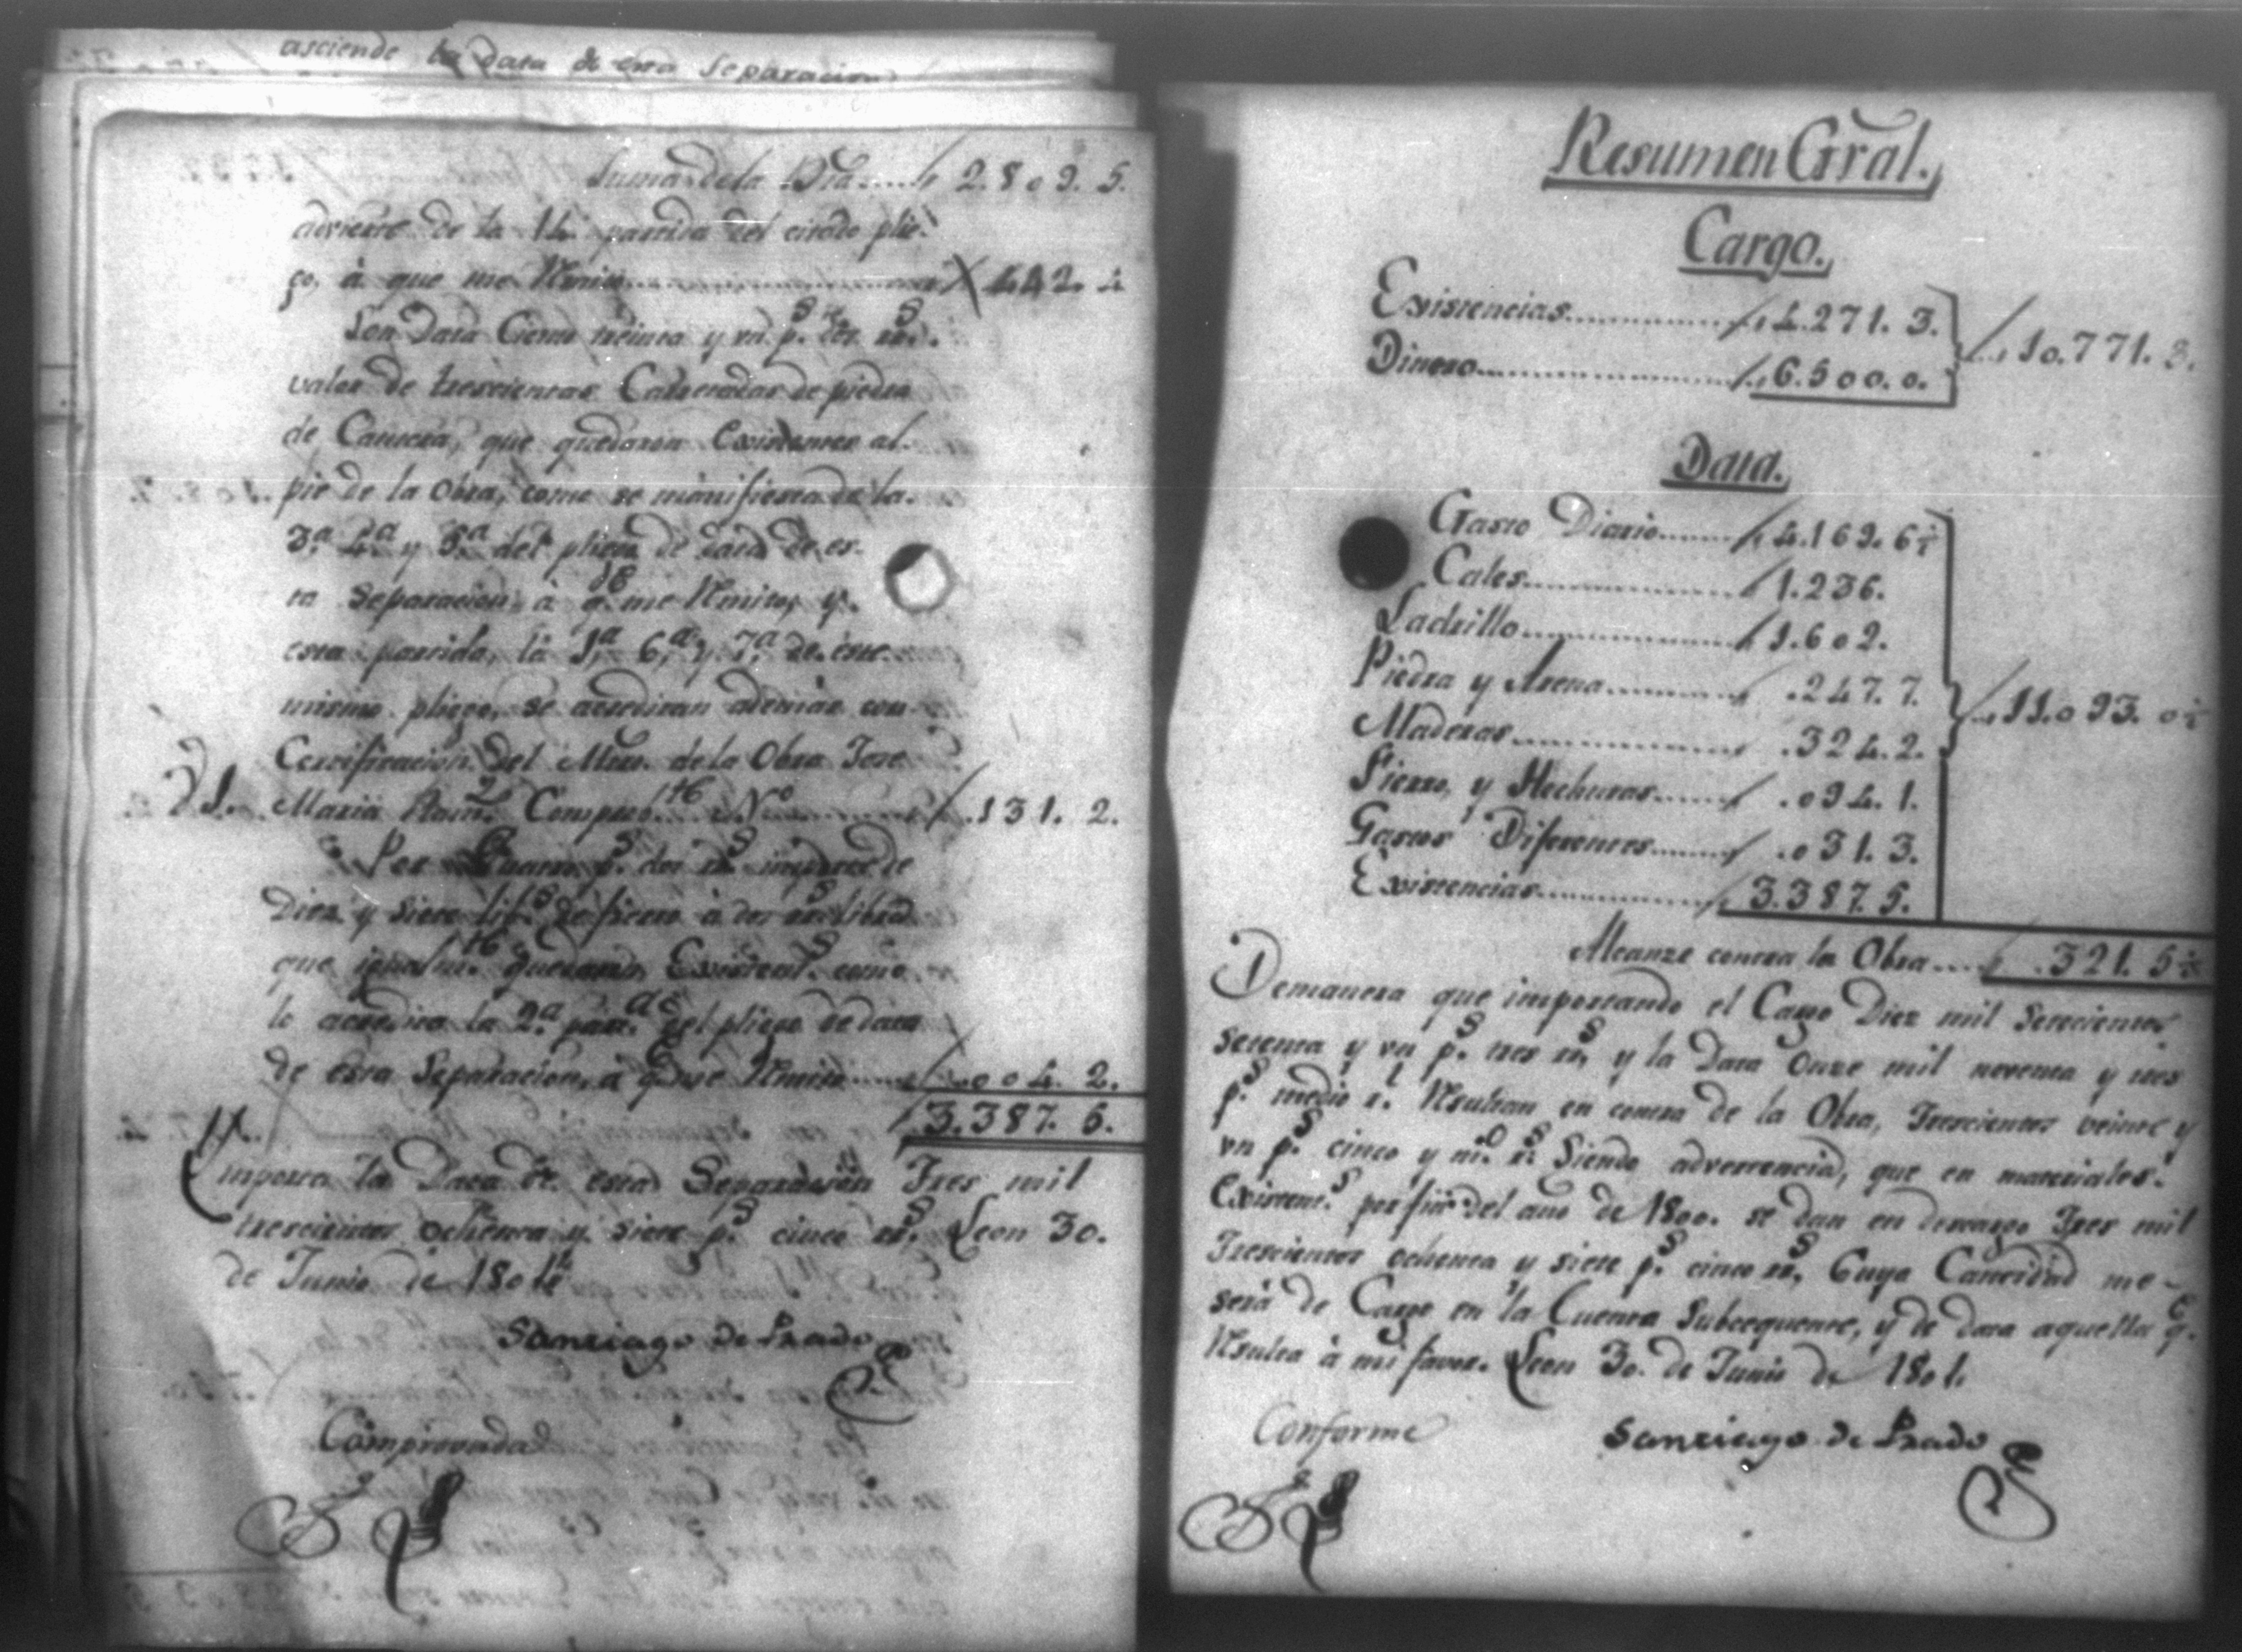 asciende la data de esta Separacion
Suma de la Bta..... 2.809. 5.
advierte de la 14. partida del citado plie-
go, à que me Rmito 442. 4
Son Data Ciento treinta y un p.s dos rr.s
valor de trescientas Carretadas de piedra
de Cantera, que quedaron Existentes al.
pie de la obra, como se manifiesta de la.
3.a 4.a y 5.a del pliego de data de es-
ta Separacion à q.e me Rmito, y.
esta partida, la 1.a 6.a y 7.a de este
mismo pliego, se acreditan además con
Certificacion del Mtro. de la Obra Jose
D 1. Maria Ram.z Comprob.te N.o .131. 2.
Por Quatro p.s dos rr.s importe de
Diez y siete lib.s de fierro à dos rr.s libra
que igualm.te quedaron Existent.s como
lo acredita la 2.a part.da del pliego de data
de esta Separacion, à q.e me Rmito ..004. 2.
3.387. 5.
Importa la Data de esta Separacion Tres mil
trescientos ochenta y siete p.s cinco rr.s Leon 30.
de Junio de 1801
Santiago de Prado
Comprovada
Resumen Gral.
Cargo.
Existencias 4.271. 3. 10.771. 3.
Dinero 6.500. 0.
Data.
Gasto Diario 4.169. 6½
Cales 1.236.
Ladrillo 1.602.
Piedra y Arena .247. 7.
Maderas .324. 2. 11.093. 0½
Fierro, y Hechuras .094. 1.
Gastos Diferentes .031. 3.
Existencias 3.387. 5.
Alcanze contra la Obra .321. 5½
Demanera que importando el Cargo Diez mil setecientos
setenta y un p.s tres rr.s y la Data Onze mil noventa y tres
p.s medio r.l Rsultan en contra de la Obra, Trescientos veinte y
un p.s cinco y m.o rr.s Siendo advertencia, que en materiales
Existent.s por fin del año de 1800. se dan en descargo Tres mil
Trescientos ochenta y siete p.s cinco rr.s Cuya Cantidad me
será de Cargo en la Cuenta Subcequente, y de data aquella q.e
Rsulta à mi favor. Leon 30. de Junio de 1801.
Conforme Santiago de Prado